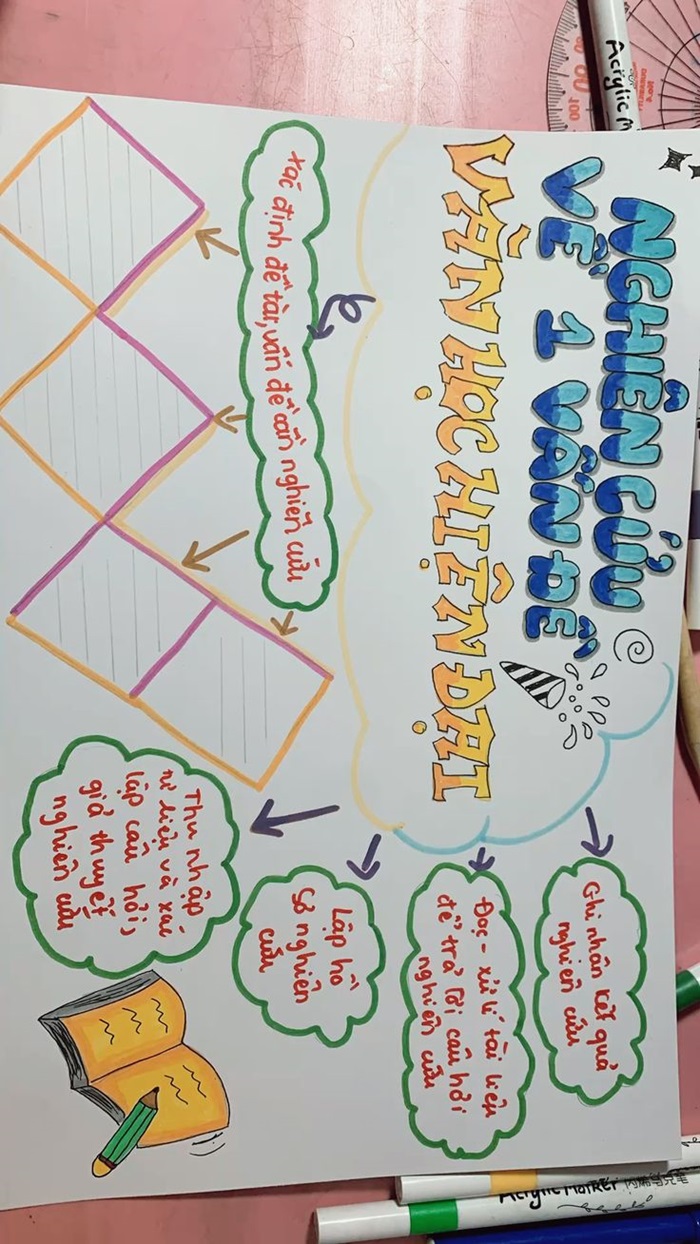 NGHIÊN CỨU
VỀ 1 VẤN ĐỀ
VĂN HỌC HIỆN ĐẠI
xác định đề tài, vấn đề cần nghiên cứu
Ghi nhận kết quả
nghiên cứu
Đọc - xử lí tài liệu
để trả lời câu hỏi
nghiên cứu
Lập hồ
sơ nghiên
cứu
Thu nhập
tư liệu và xác
lập câu hỏi,
giả thuyết
nghiên cứu
Acrylic M
Acrylic Marker